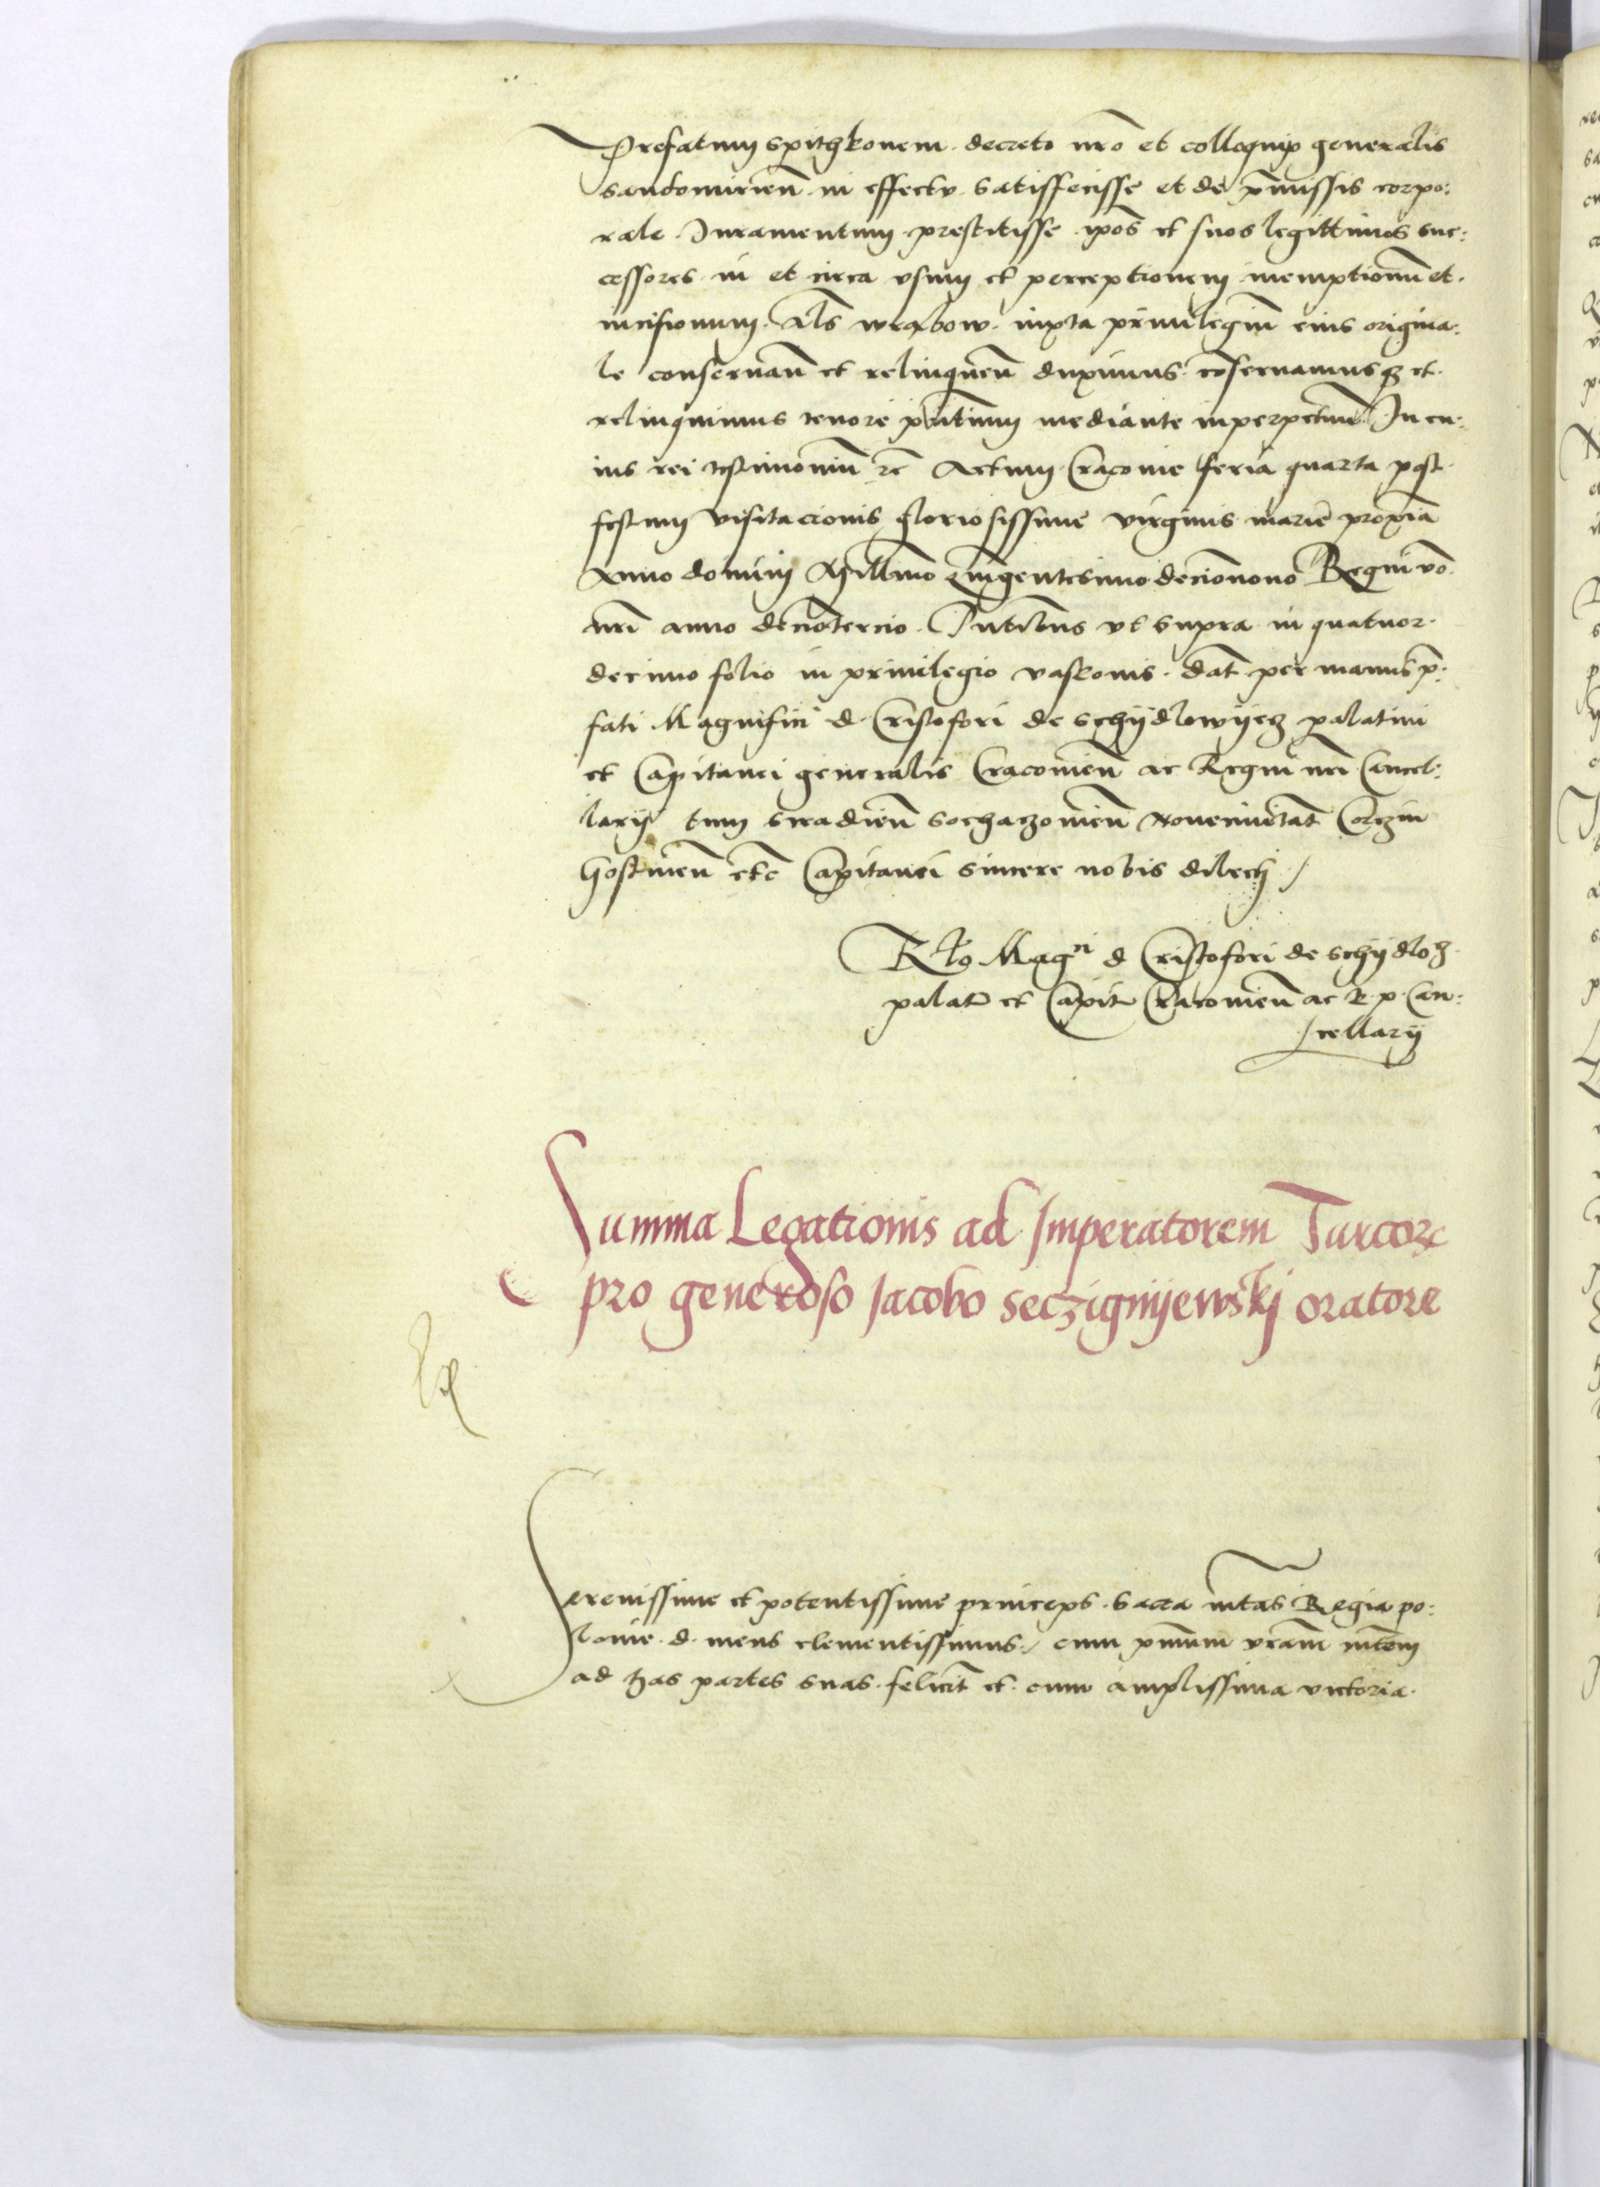 Prefatum Spithkonem decreto nro et colloquijs generalis
Sandomirien in effectu satisffecisse et de pmissis corpo:
rale Juramentum prestitisse ipos et suos legittimos suc:
cessores in et circa vsum et perceptionem inemptionum et
incisionum Als wrabow iuxta priuilegium eius origina:
le conseruan et relinquen duximus coseruamusq et
relinquimus tenore pntium mediante inperpetuum Jn cu:
ius rei testimonium rc Actum Cracouie feria quarta post
festum visitacionis gloriosissime virginis marie proxia
Anno domini Millmo Quingentesimo decimonono Regni vo
nri anno decimotercio Pntibus vt supra in quatuor
decimo folio in priuilegio vaskonis dat per manus p:
fati Magnifici d Cristofori de schijdlowijecz palatini
et Capitanei generalis Cracouien ac Regni nri Cancel:
larij tum siradien sochaczouien Noueciuitat Corczin
Gostinen etc Capitanei sincere nobis dilecti
Rlo Magci d Cristofori de schijdloz
palat et Capit Cracouien ac R p Can:
cellarij
Summa Legationis ad Imperatorem Turcor
pro generoso Jacobo seczignijewskj oratore
Serenissime et potentissime princeps Sacra mtas Regia po:
lonie d meus clementissimus cum pmum vram mtem
ad has partes suas felicit et cum amplissima victoria